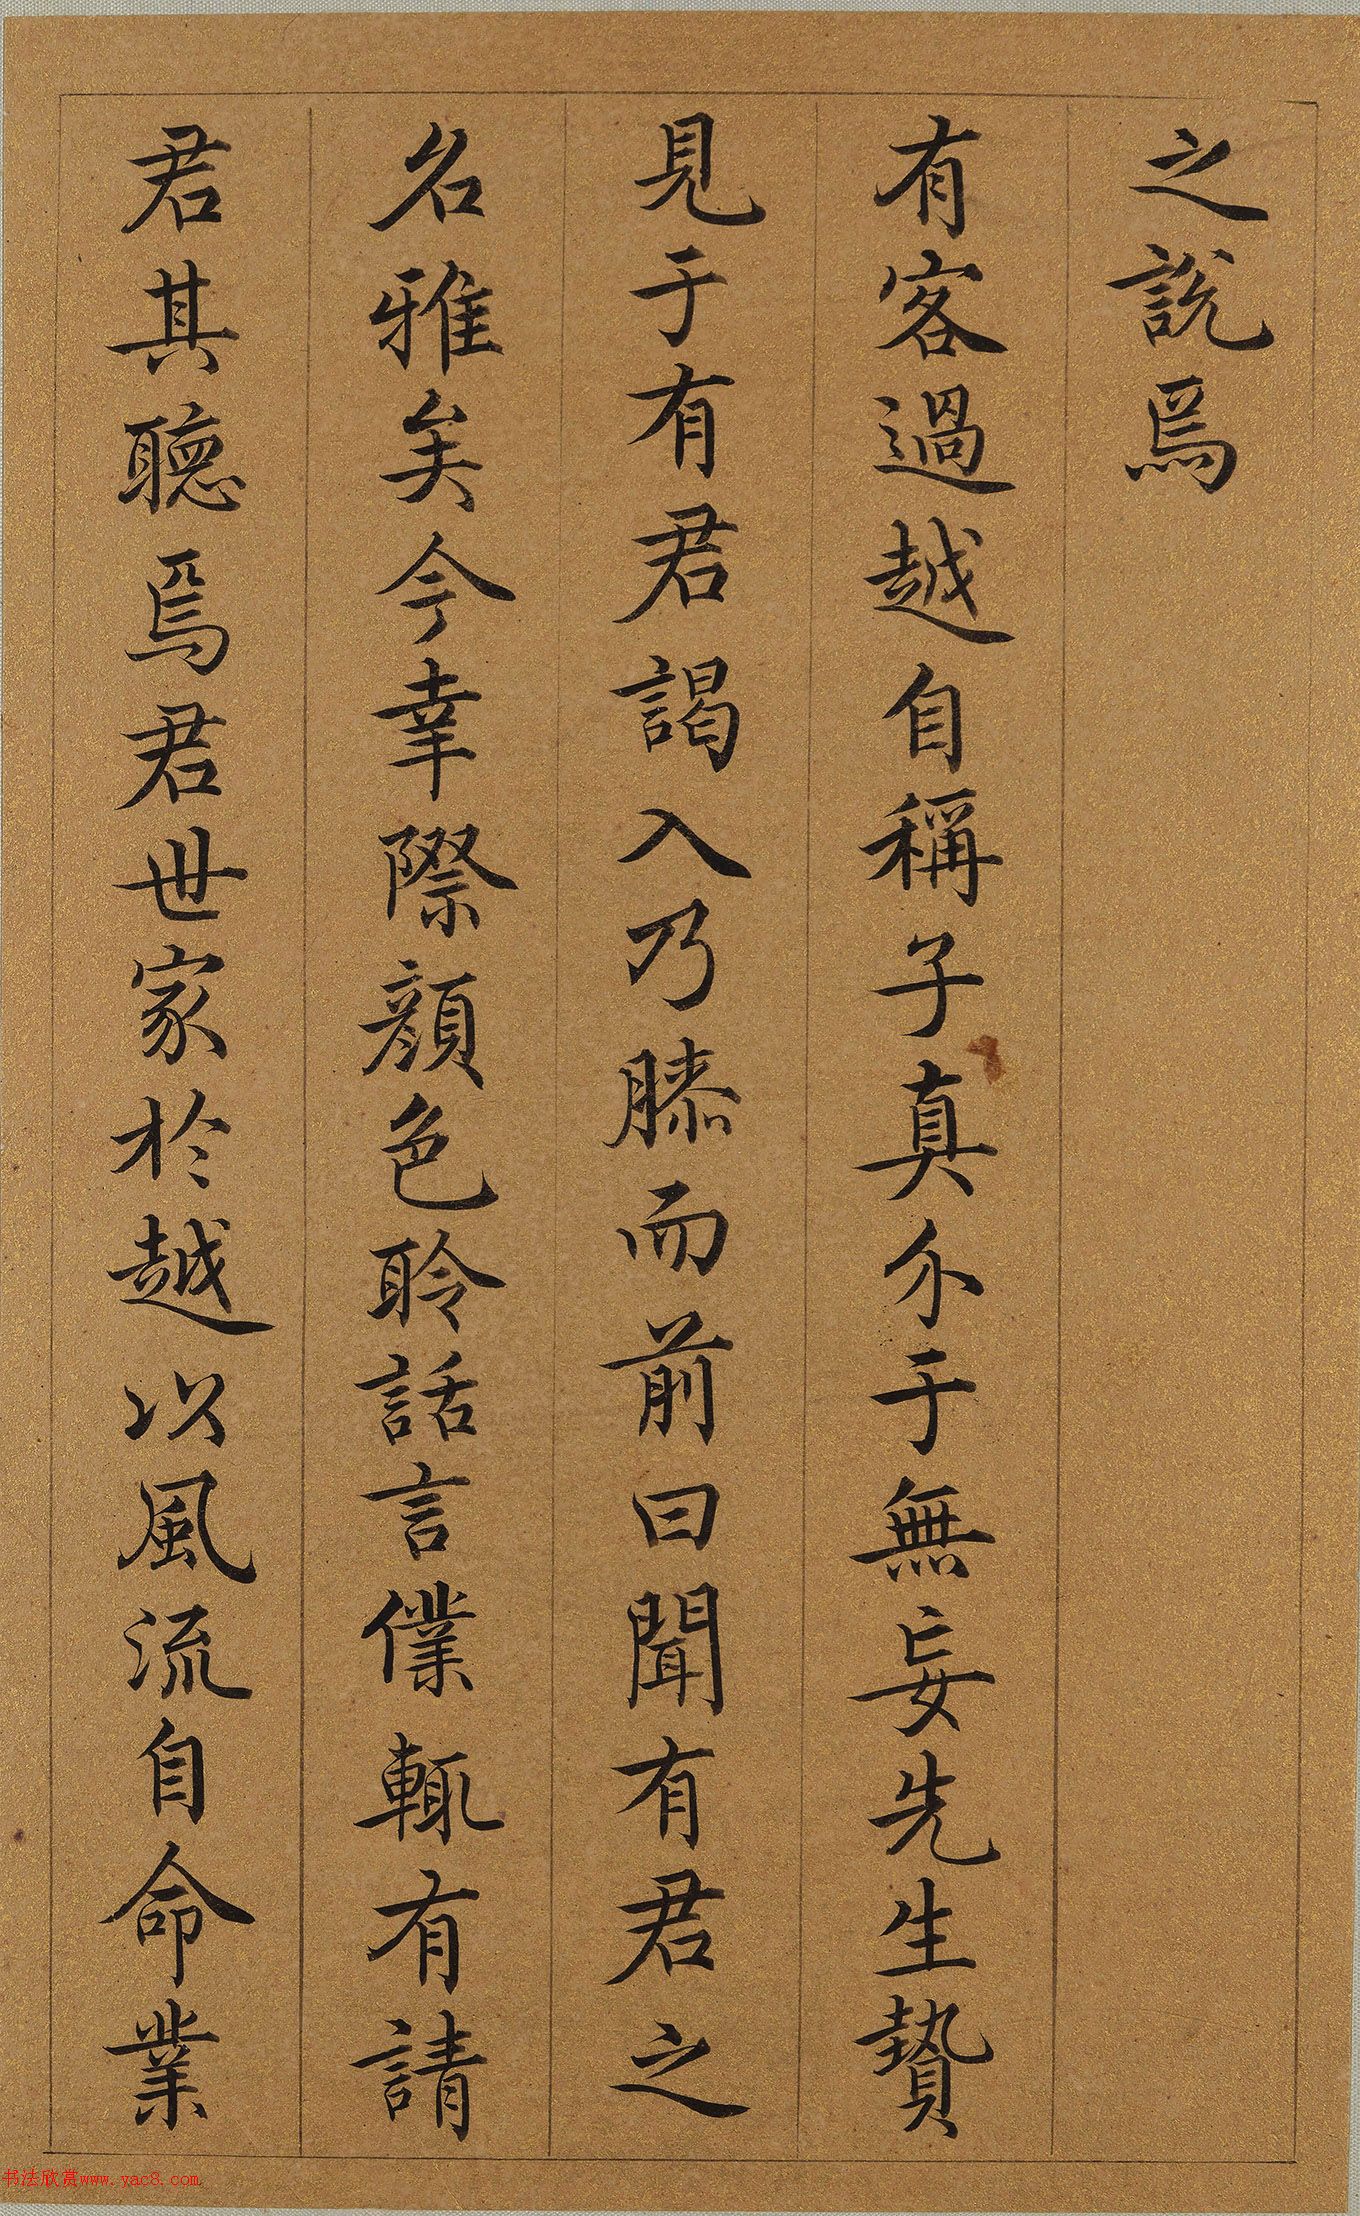 之說焉
有客過越自稱子真介于無妄先生贄
見于有君謁入乃膝而前曰聞有君之
名雅矣今幸際顏色聆話言僕輒有請
君其聽焉君世家於越以風流自命業
书法欣赏www.yac8.com